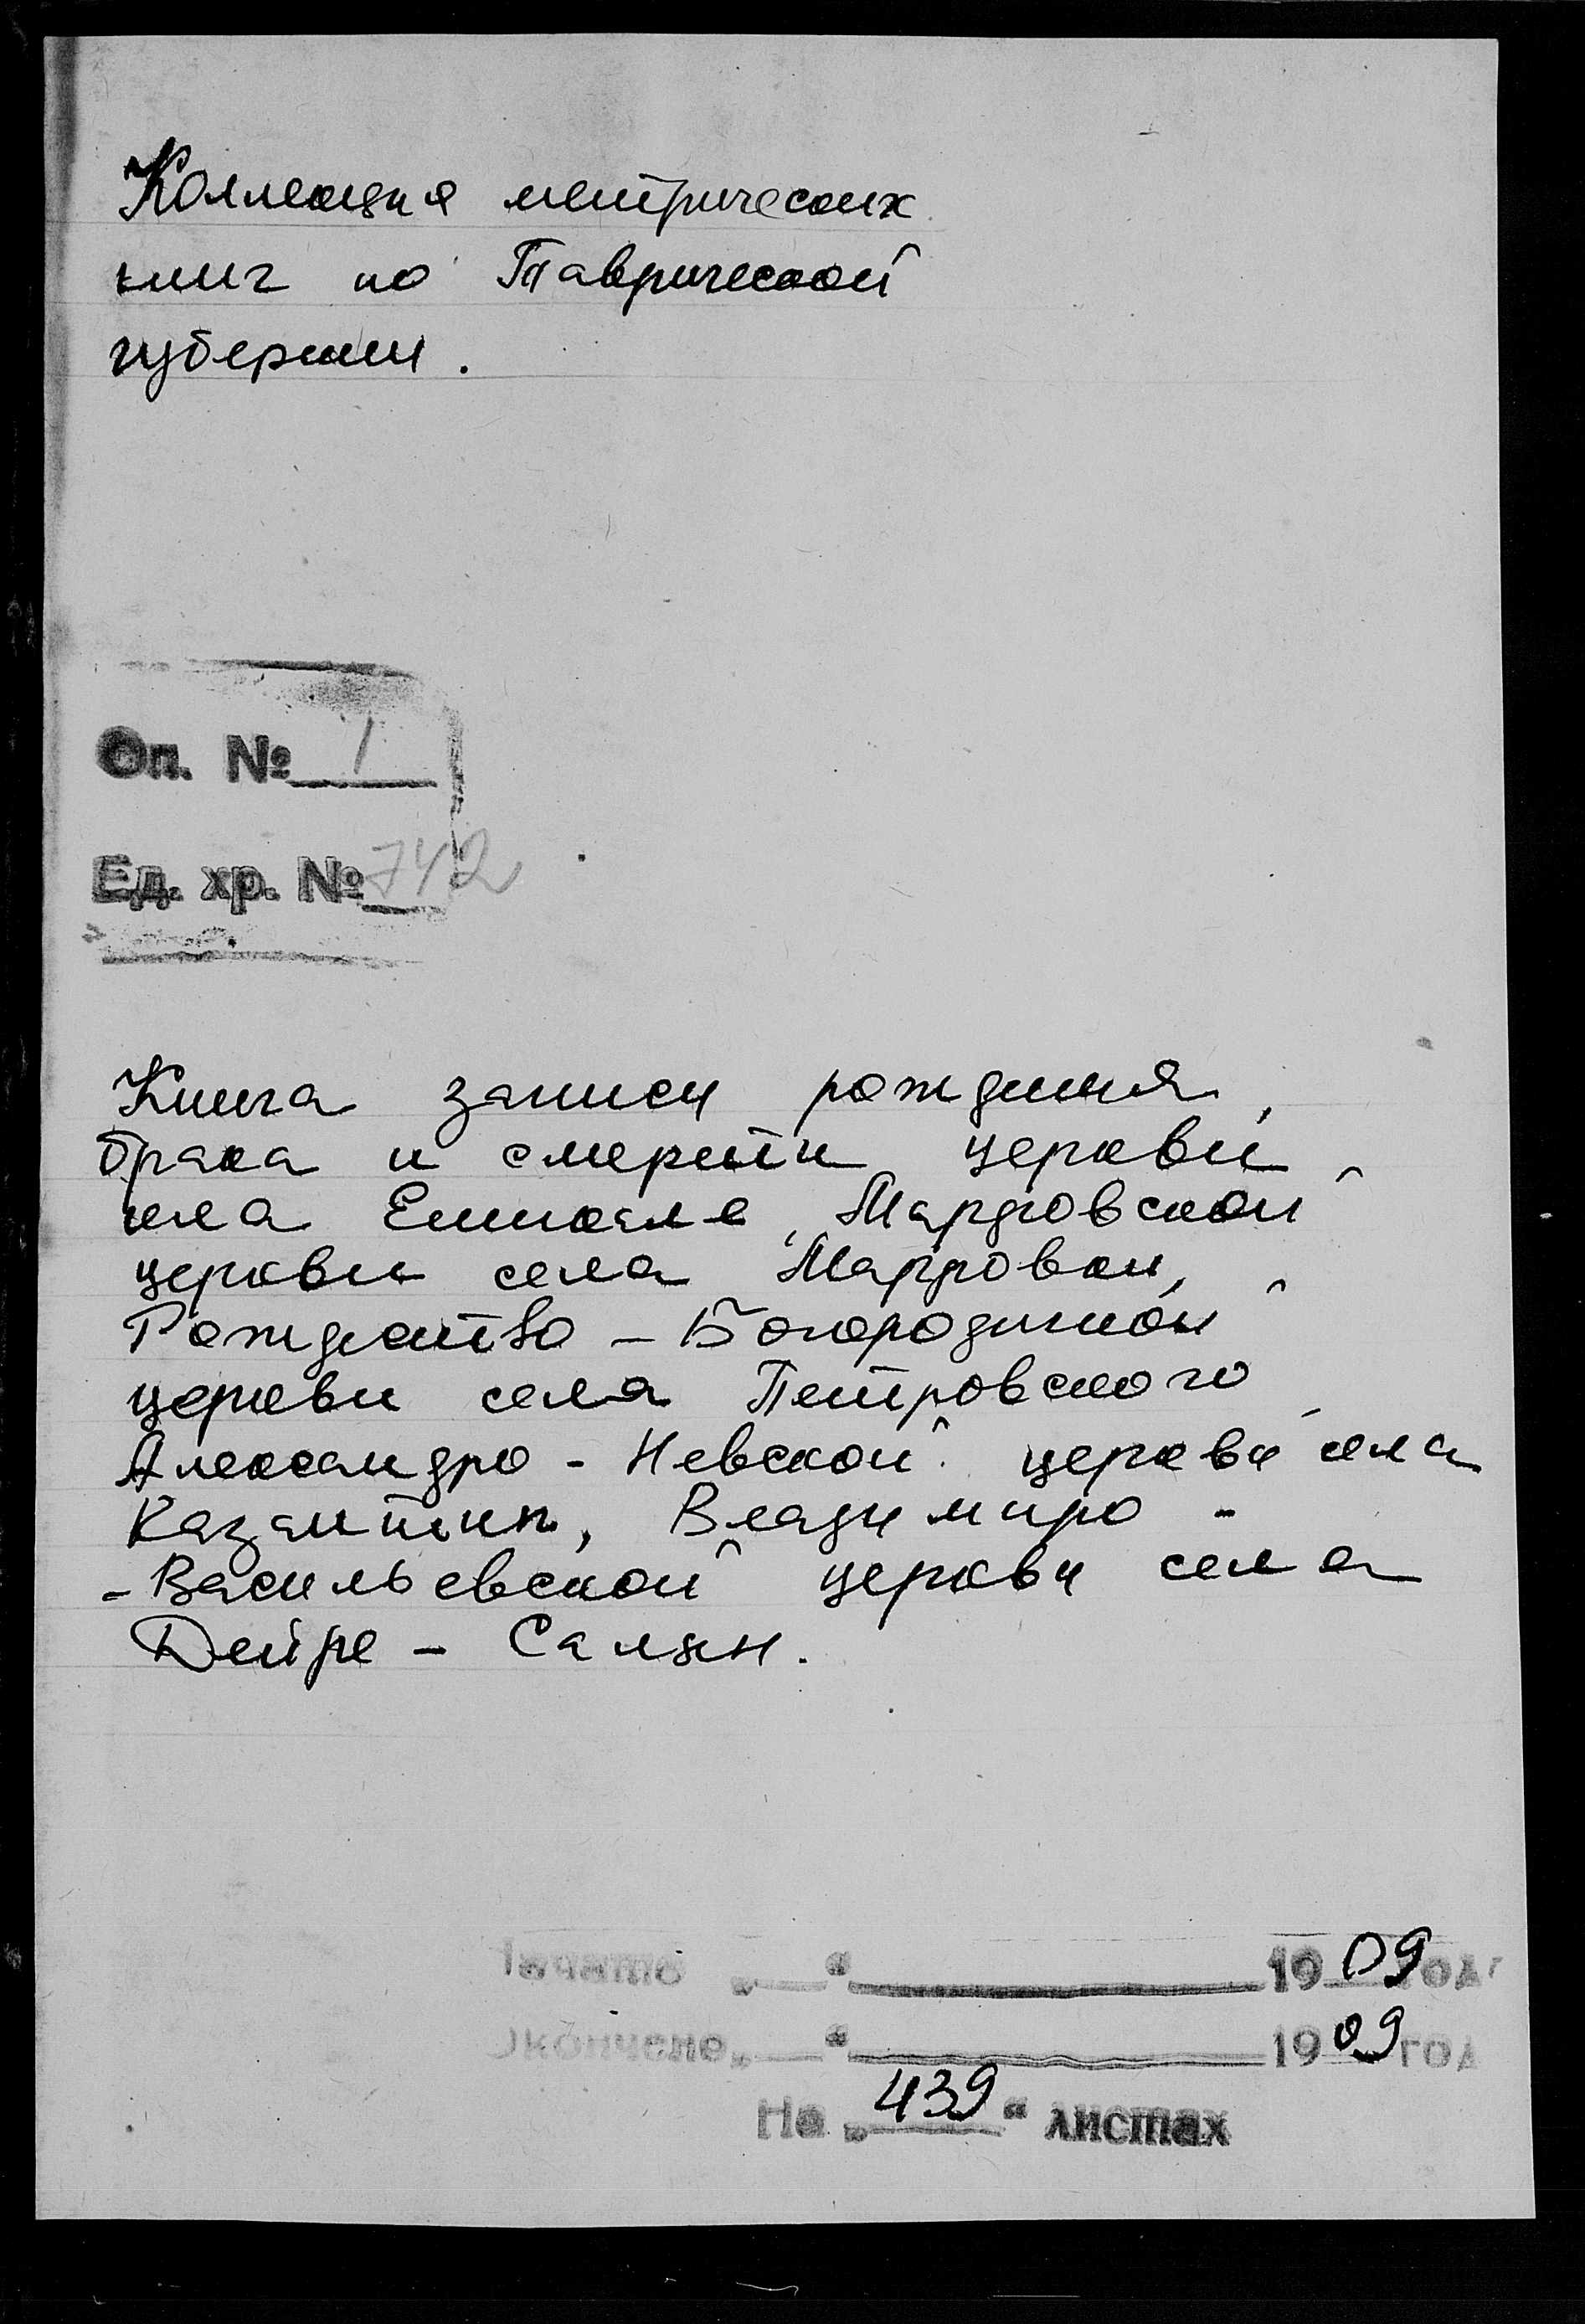 Коллекция метрических
книг по Таврической
губернии.
Оп. № 1
Ед. хр. № 742
Книга записи рождения,
брака и смерти церкви
села Еникале, Марфовской
церкви села Марфовки,
Рождество-Богородичной
церкви села Петровского
Александро-Невской церкви села
Казантип, Владимиро-
-Васильевской церкви села
Дейре-Салын.
Начато „ “ 1909 года
Окончено „ “ 1909 год
На „439“ листах